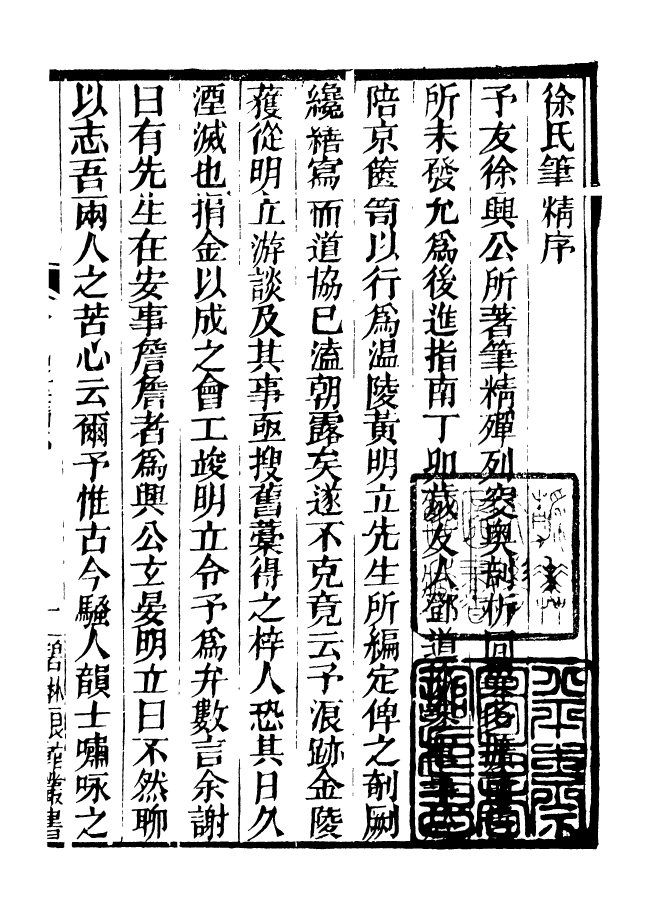 徐氏筆精序
予友徐興公所著筆精殫列窔奧剖析
所未發允爲後進指南丁卯歲友人鄧道
陪京篋笥以行爲温陵黃明立先生所編定俾之剞劂
纔繕寫而道協已溘朝露矣遂不克竟云予浪跡金陵
獲從明立游談及其事亟搜舊藁得之梓人恐其日久
湮滅也捐金以成之會工竣明立令予爲弁數言余謝
曰有先生在安事詹詹者爲興公玄晏明立曰不然聊
以志吾兩人之苦心云爾予惟古今騷人韻士嘯咏之
叢書